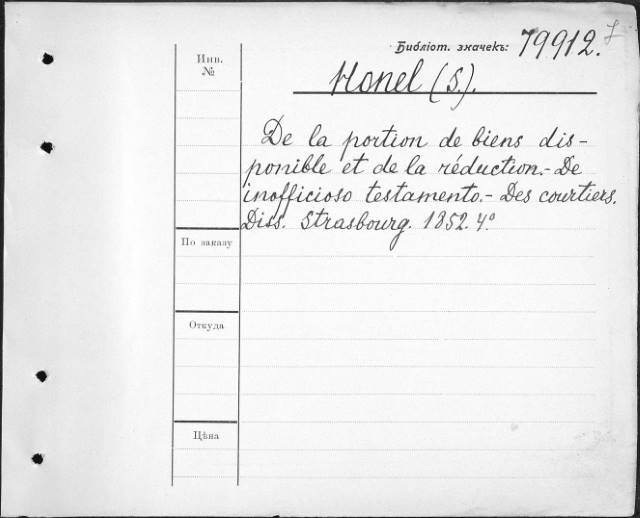 Библіот. значекъ: 79912.
Инв.
№
Honel (S.).
De la portion de biens dis-
ponible et de la réduction.- De
inofficioso testamento.- Des courtiers.
Diss. Strasbourg. 1852. 4°
По заказу
Откуда
Цѣна